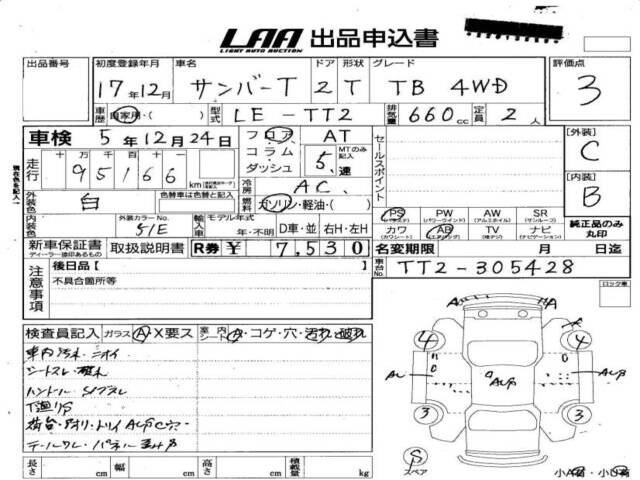 LAA 出品申込書
LIGHT AUTO AUCTION
出品番号 初度登録年月 車名 ドア 形状 グレード 評価点
17年12月 サンバーT 2 T TB 4WD 3
車歴 自家用・( ) 型式 LE-TT2 排気量 660cc 定員 2人
車検 5年12月24日 フロア AT
コラム MTのみ記入
ダッシュ 5速
走行 十万千百十
95166 km
セールスポイント
[外装] C
[内装] B
冷房 AC
外装色 白 色替車は色替と記入 燃料 ガソリン・軽油・( )
PS PW AW SR
(パワステ) (パワーウインド) (アルミホイル) (サンルーフ)
カワ AB TV ナビ
(カワシート) (エアバッグ) (テレビ) (ナビゲーション)
純正品のみ丸印
内装色 外装カラーNo. 51E 輸入車 モデル年式 年・不明 D車・並 右H・左H
新車保証書 取扱説明書 R券 ¥ 7,530
ディーラー捺印あるもの
名変期限 月 日迄
車台No. TT2-305428
現在色を記入
注意事項 後日品[ ]
不具合箇所等
ロック車
検査員記入 ガラス A・X要ス 室内シート A・コゲ・穴・汚れ・破れ
車内汚れ・ニオイ
シートスレ・
ハンドル
下廻りS
荷台・アオリ・トリイ ALP
テールワレ・パネル
A A
4 4
AL ALP AL
3 3
S スペア
長さ cm 幅 cm 高さ cm 積載量 kg